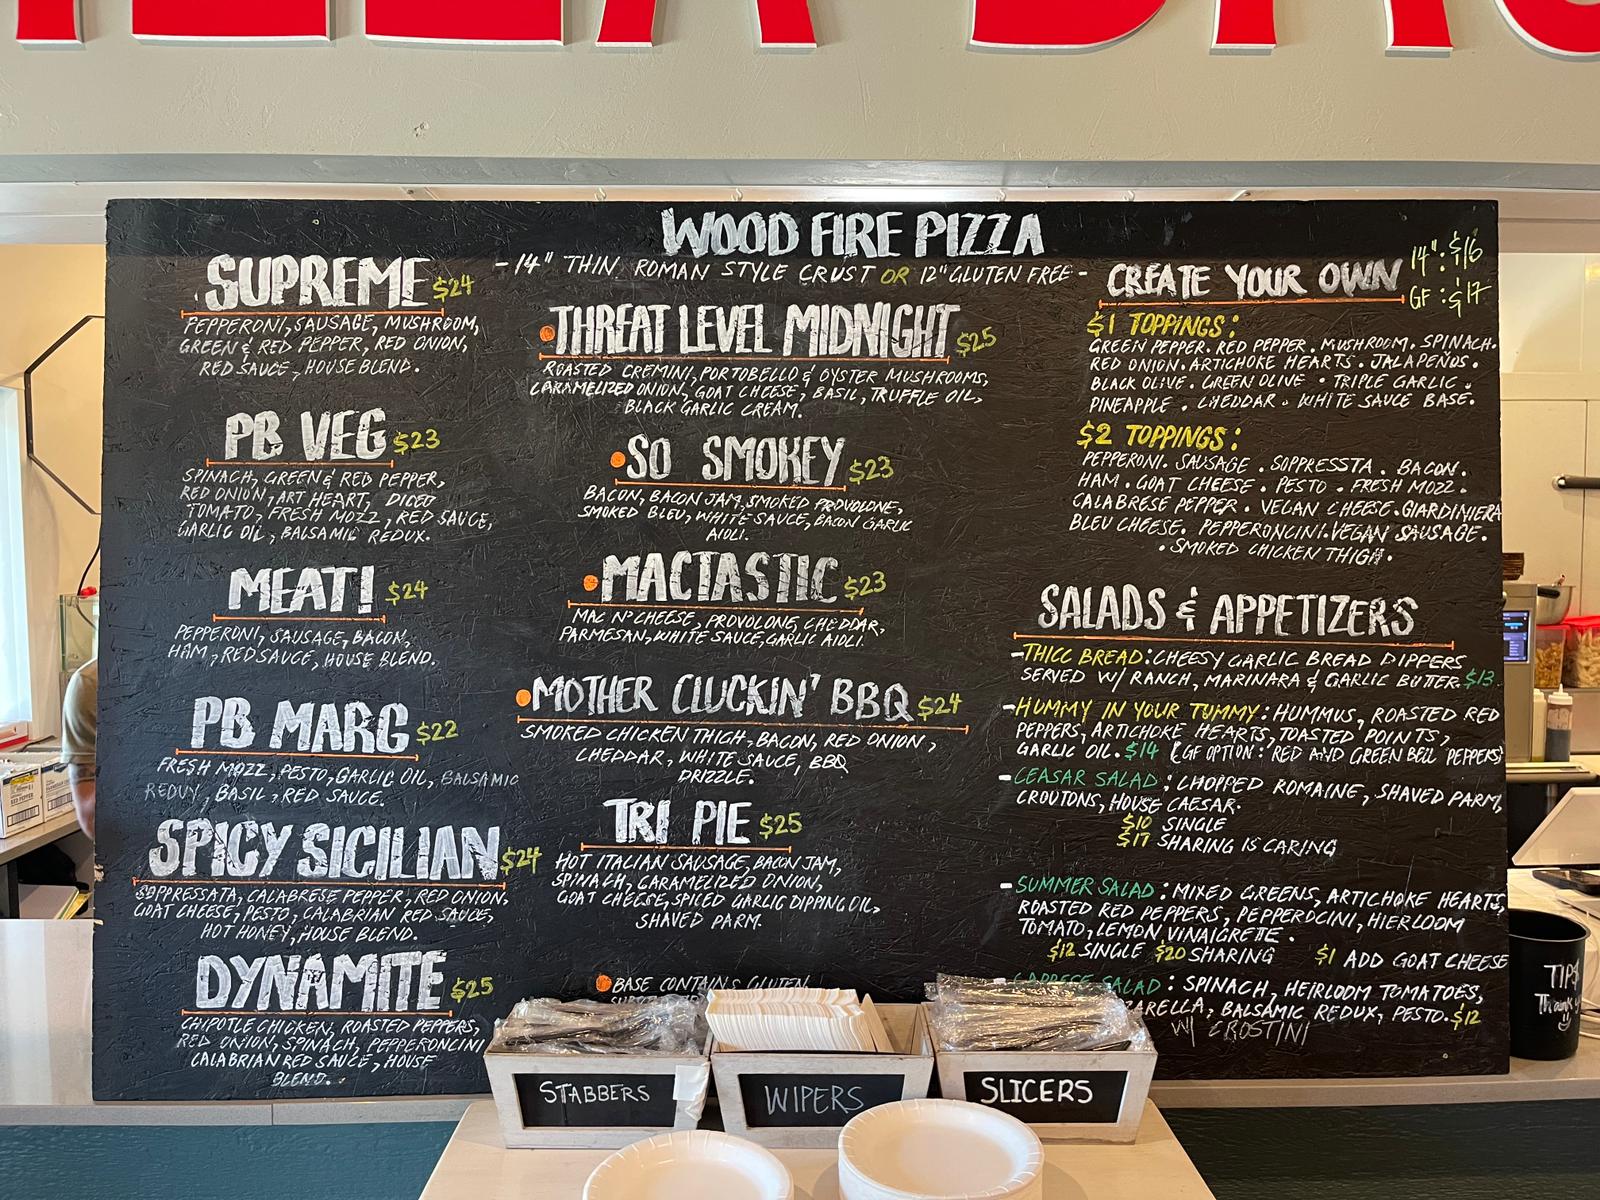 WOOD FIRE PIZZA
-14" THIN ROMAN STYLE CRUST OR 12" GLUTEN FREE-
SUPREME $24
PEPPERONI, SAUSAGE, MUSHROOM,
GREEN & RED PEPPER, RED ONION,
RED SAUCE, HOUSE BLEND.
PB VEG $23
SPINACH, GREEN & RED PEPPER,
RED ONION, ART HEART, DICED
TOMATO, FRESH MOZZ, RED SAUCE,
GARLIC OIL, BALSAMIC REDUX.
MEAT! $24
PEPPERONI, SAUSAGE, BACON,
HAM, RED SAUCE, HOUSE BLEND.
PB MARG $22
FRESH MOZZ, PESTO, GARLIC OIL, BALSAMIC
REDUX, BASIL, RED SAUCE.
SPICY SICILIAN $24
SOPPRESSATA, CALABRESE PEPPER, RED ONION,
GOAT CHEESE, PESTO, CALABRIAN RED SAUCE,
HOT HONEY, HOUSE BLEND.
DYNAMITE $25
CHIPOTLE CHICKEN, ROASTED PEPPERS,
RED ONION, SPINACH, PEPPERONCINI
CALABRIAN RED SAUCE, HOUSE
BLEND.
THREAT LEVEL MIDNIGHT $25
ROASTED CREMINI, PORTOBELLO & OYSTER MUSHROOMS,
CARAMELIZED ONION, GOAT CHEESE, BASIL, TRUFFLE OIL,
BLACK GARLIC CREAM.
SO SMOKEY $23
BACON, BACON JAM, SMOKED PROVOLONE,
SMOKED BLEU, WHITE SAUCE, BACON GARLIC
AIOLI.
MACTASTIC $23
MAC N' CHEESE, PROVOLONE, CHEDDAR,
PARMESAN, WHITE SAUCE, GARLIC AIOLI.
MOTHER CLUCKIN' BBQ $24
SMOKED CHICKEN THIGH, BACON, RED ONION,
CHEDDAR, WHITE SAUCE, BBQ
DRIZZLE.
TRI PIE $25
HOT ITALIAN SAUSAGE, BACON JAM,
SPINACH, CARAMELIZED ONION,
GOAT CHEESE, SPICED GARLIC DIPPING OIL,
SHAVED PARM.
BASE CONTAINS GLUTEN
CREATE YOUR OWN 14": $16
GF: $17
$1 TOPPINGS:
GREEN PEPPER. RED PEPPER. MUSHROOM. SPINACH.
RED ONION. ARTICHOKE HEARTS. JALAPEÑOS.
BLACK OLIVE. GREEN OLIVE. TRIPLE GARLIC.
PINEAPPLE. CHEDDAR. WHITE SAUCE BASE.
$2 TOPPINGS:
PEPPERONI. SAUSAGE. SOPPRESSTA. BACON.
HAM. GOAT CHEESE. PESTO. FRESH MOZZ.
CALABRESE PEPPER. VEGAN CHEESE. GIARDINIERA
BLEU CHEESE. PEPPERONCINI. VEGAN SAUSAGE.
. SMOKED CHICKEN THIGH.
SALADS & APPETIZERS
-THICC BREAD: CHEESY GARLIC BREAD DIPPERS
SERVED W/ RANCH, MARINARA & GARLIC BUTTER. $13
-HUMMY IN YOUR TUMMY: HUMMUS, ROASTED RED
PEPPERS, ARTICHOKE HEARTS, TOASTED POINTS,
GARLIC OIL. $14 (GF OPTION: RED AND GREEN BELL PEPPERS)
-CEASAR SALAD: CHOPPED ROMAINE, SHAVED PARM,
CROUTONS, HOUSE CAESAR.
$10 SINGLE
$17 SHARING IS CARING
-SUMMER SALAD: MIXED GREENS, ARTICHOKE HEARTS,
ROASTED RED PEPPERS, PEPPEROCINI, HIERLOOM
TOMATO, LEMON VINAIGRETTE.
$12 SINGLE $20 SHARING $1 ADD GOAT CHEESE
SALAD: SPINACH, HEIRLOOM TOMATOES,
BALSAMIC REDUX, PESTO. $12
W/ CROSTINI
TIPS
Thank
STABBERS
WIPERS
SLICERS